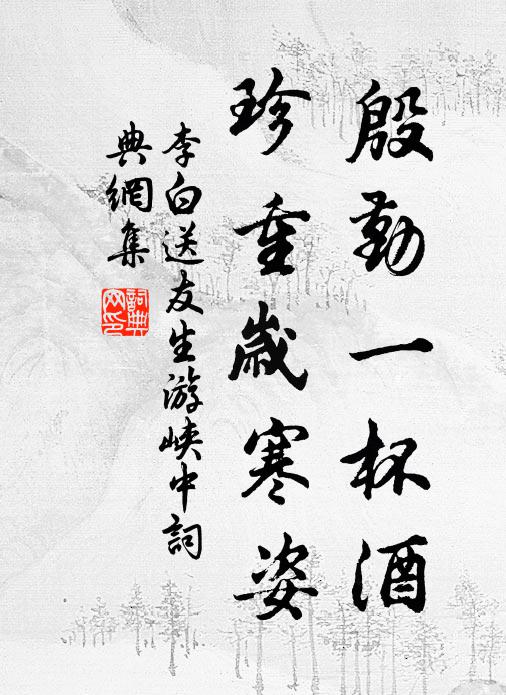 殷勤一杯酒
珍重歲寒姿
李白送友生游峽中詞
典網集
詞典
网印